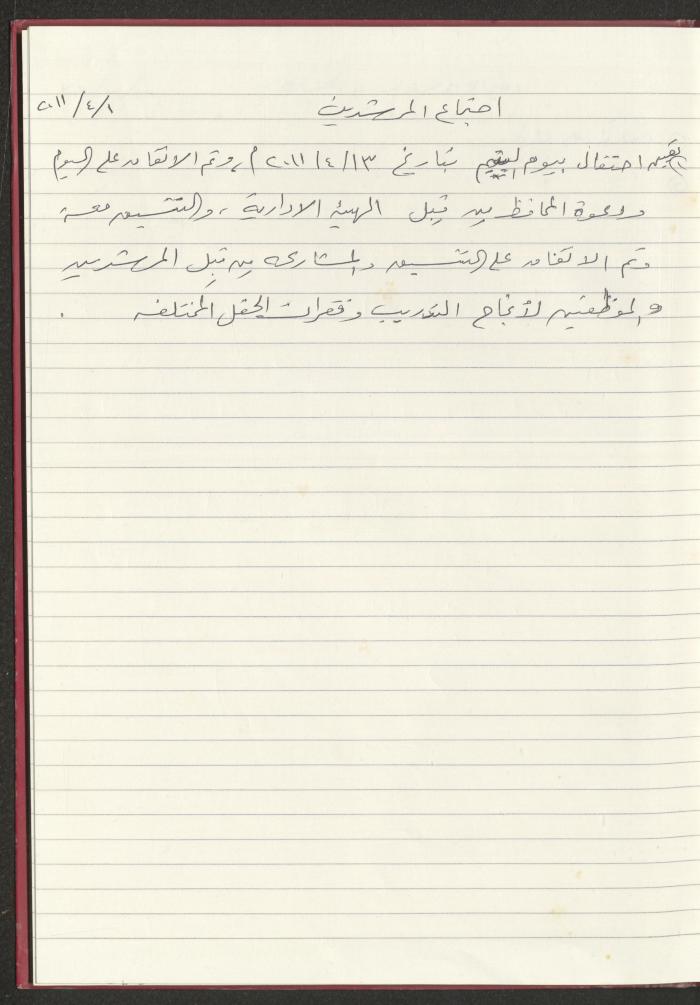 اجتماع المرشدين ٢٠١١/٤/١
١) تعيين احتفال بيوم اليتيم بتاريخ ٢٠١١/٤/١٣م، وتم الاتفاق على اليوم
ودعوة المحافظ من قبل الهيئة الادارية، والتنسيق معه
وتم الاتفاق على التنسيق والمشاركه من قبل المرشدين
والموظفين لأنجاح التدريب وفقرات الحفل المختلفه .